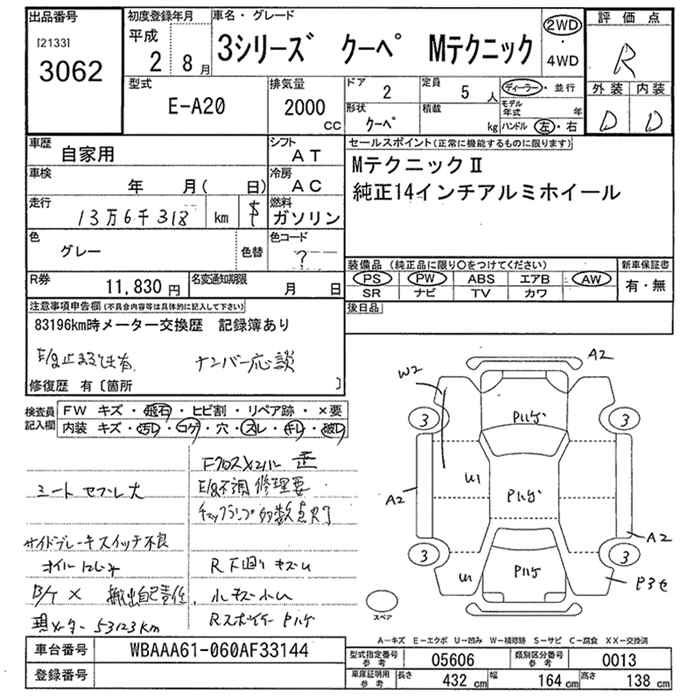 出品番号
[2133]
3062
初度登録年月
平成 2 8月
車名・グレード
3シリーズ クーペ Mテクニック
2WD・4WD
評価点
R
外装 内装
D D
型式
E-A20
排気量
2000 CC
ドア 2
形状 クーペ
定員 5人
積載 kg
ディーラー・並行
モデル年式 年
ハンドル 左・右
車歴 自家用
シフト AT
車検 年 月( 日)
冷房 AC
走行 13万6千318 km
燃料 ガソリン
色 グレー 色替
色コード ?
R券 11,830円
名変通知期限 月 日
セールスポイント(正常に機能するものに限ります)
MテクニックⅡ
純正14インチアルミホイール
装備品(純正品に限り〇をつけてください)
PS PW ABS エアB AW
SR ナビ TV カワ
新車保証書
有・無
後日品
注意事項申告欄(不具合内容等は具体的に記入して下さい)
83196km時メーター交換歴 記録簿あり
ナンバー応談
修復歴 有〔箇所 〕
検査員記入欄
FW キズ・飛石・ヒビ割・リペア跡・×要
内装 キズ・汚レ・コゲ・穴・スレ・キレ・破レ
シートセブレ大
サイドブレーキスイッチ不良
オイルにじみ
B/T × 搬出自己責任
現メーター 53123km
E/g不調 修理要
チェックランプ多数点灯
R下廻りキズU
小キズ小U
Rスポイラー Pハゲ
W2
A2
3
3
Pハゲ
U1
Pハゲ
A2
A2
3
3
U1
Pハゲ
スペア
A―キズ E―エクボ U―凹み W―補修跡 S―サビ C―腐食 XX―交換済
車台番号 WBAAA61-060AF33144
登録番号
型式指定番号 参考 05606
類別区分番号 参考 0013
車庫証明用 参考 長さ 432cm 幅 164cm 高さ 138cm